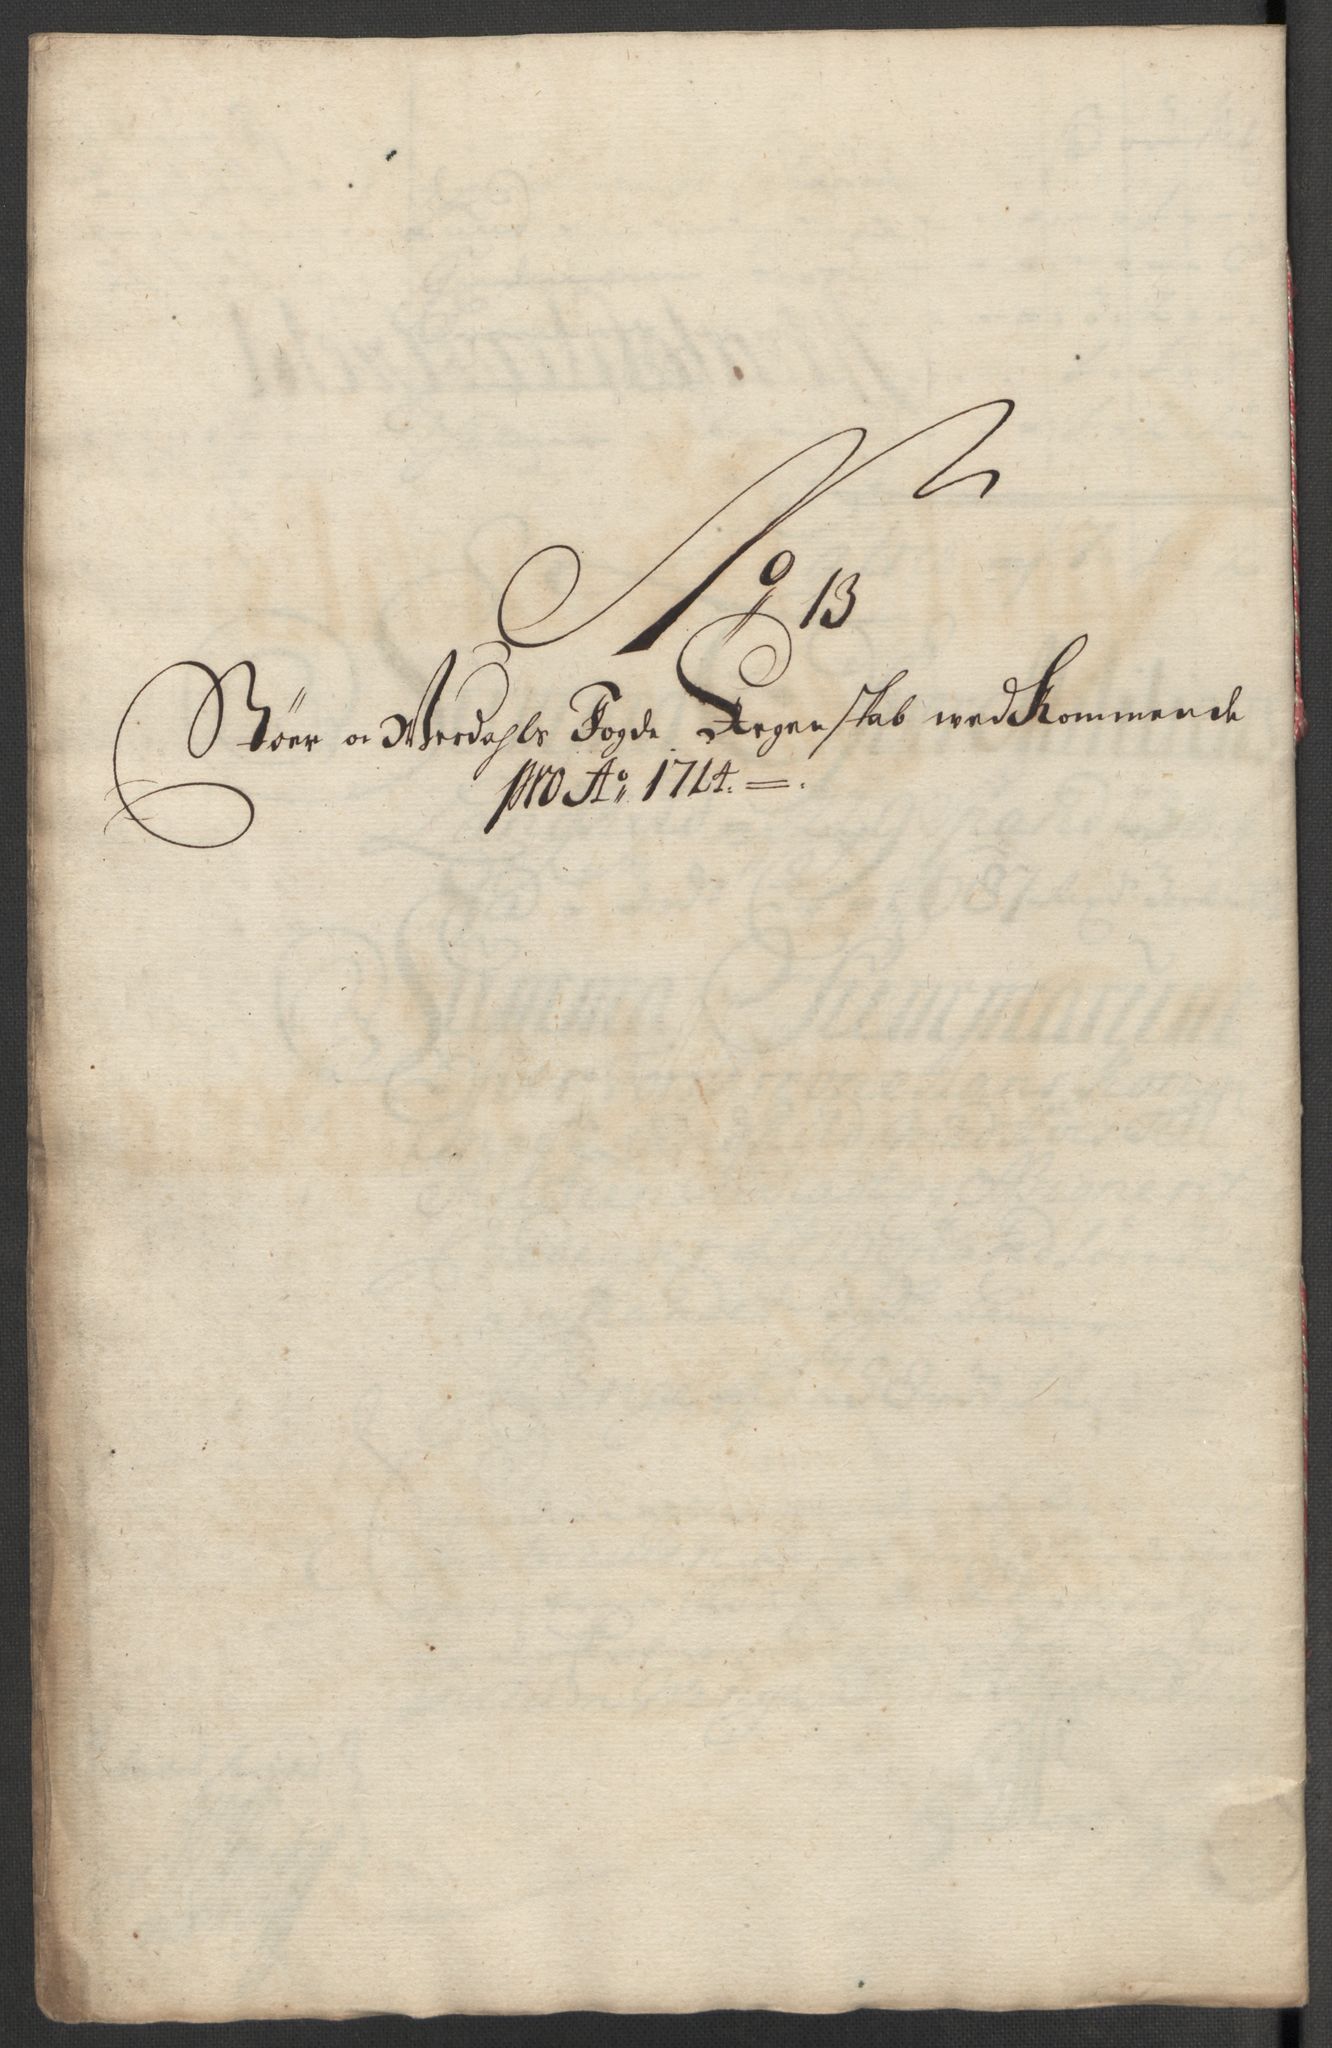 No 13
Støer oc Werdahls Fogde Regenskab wedkommende
pro Ao 1714.